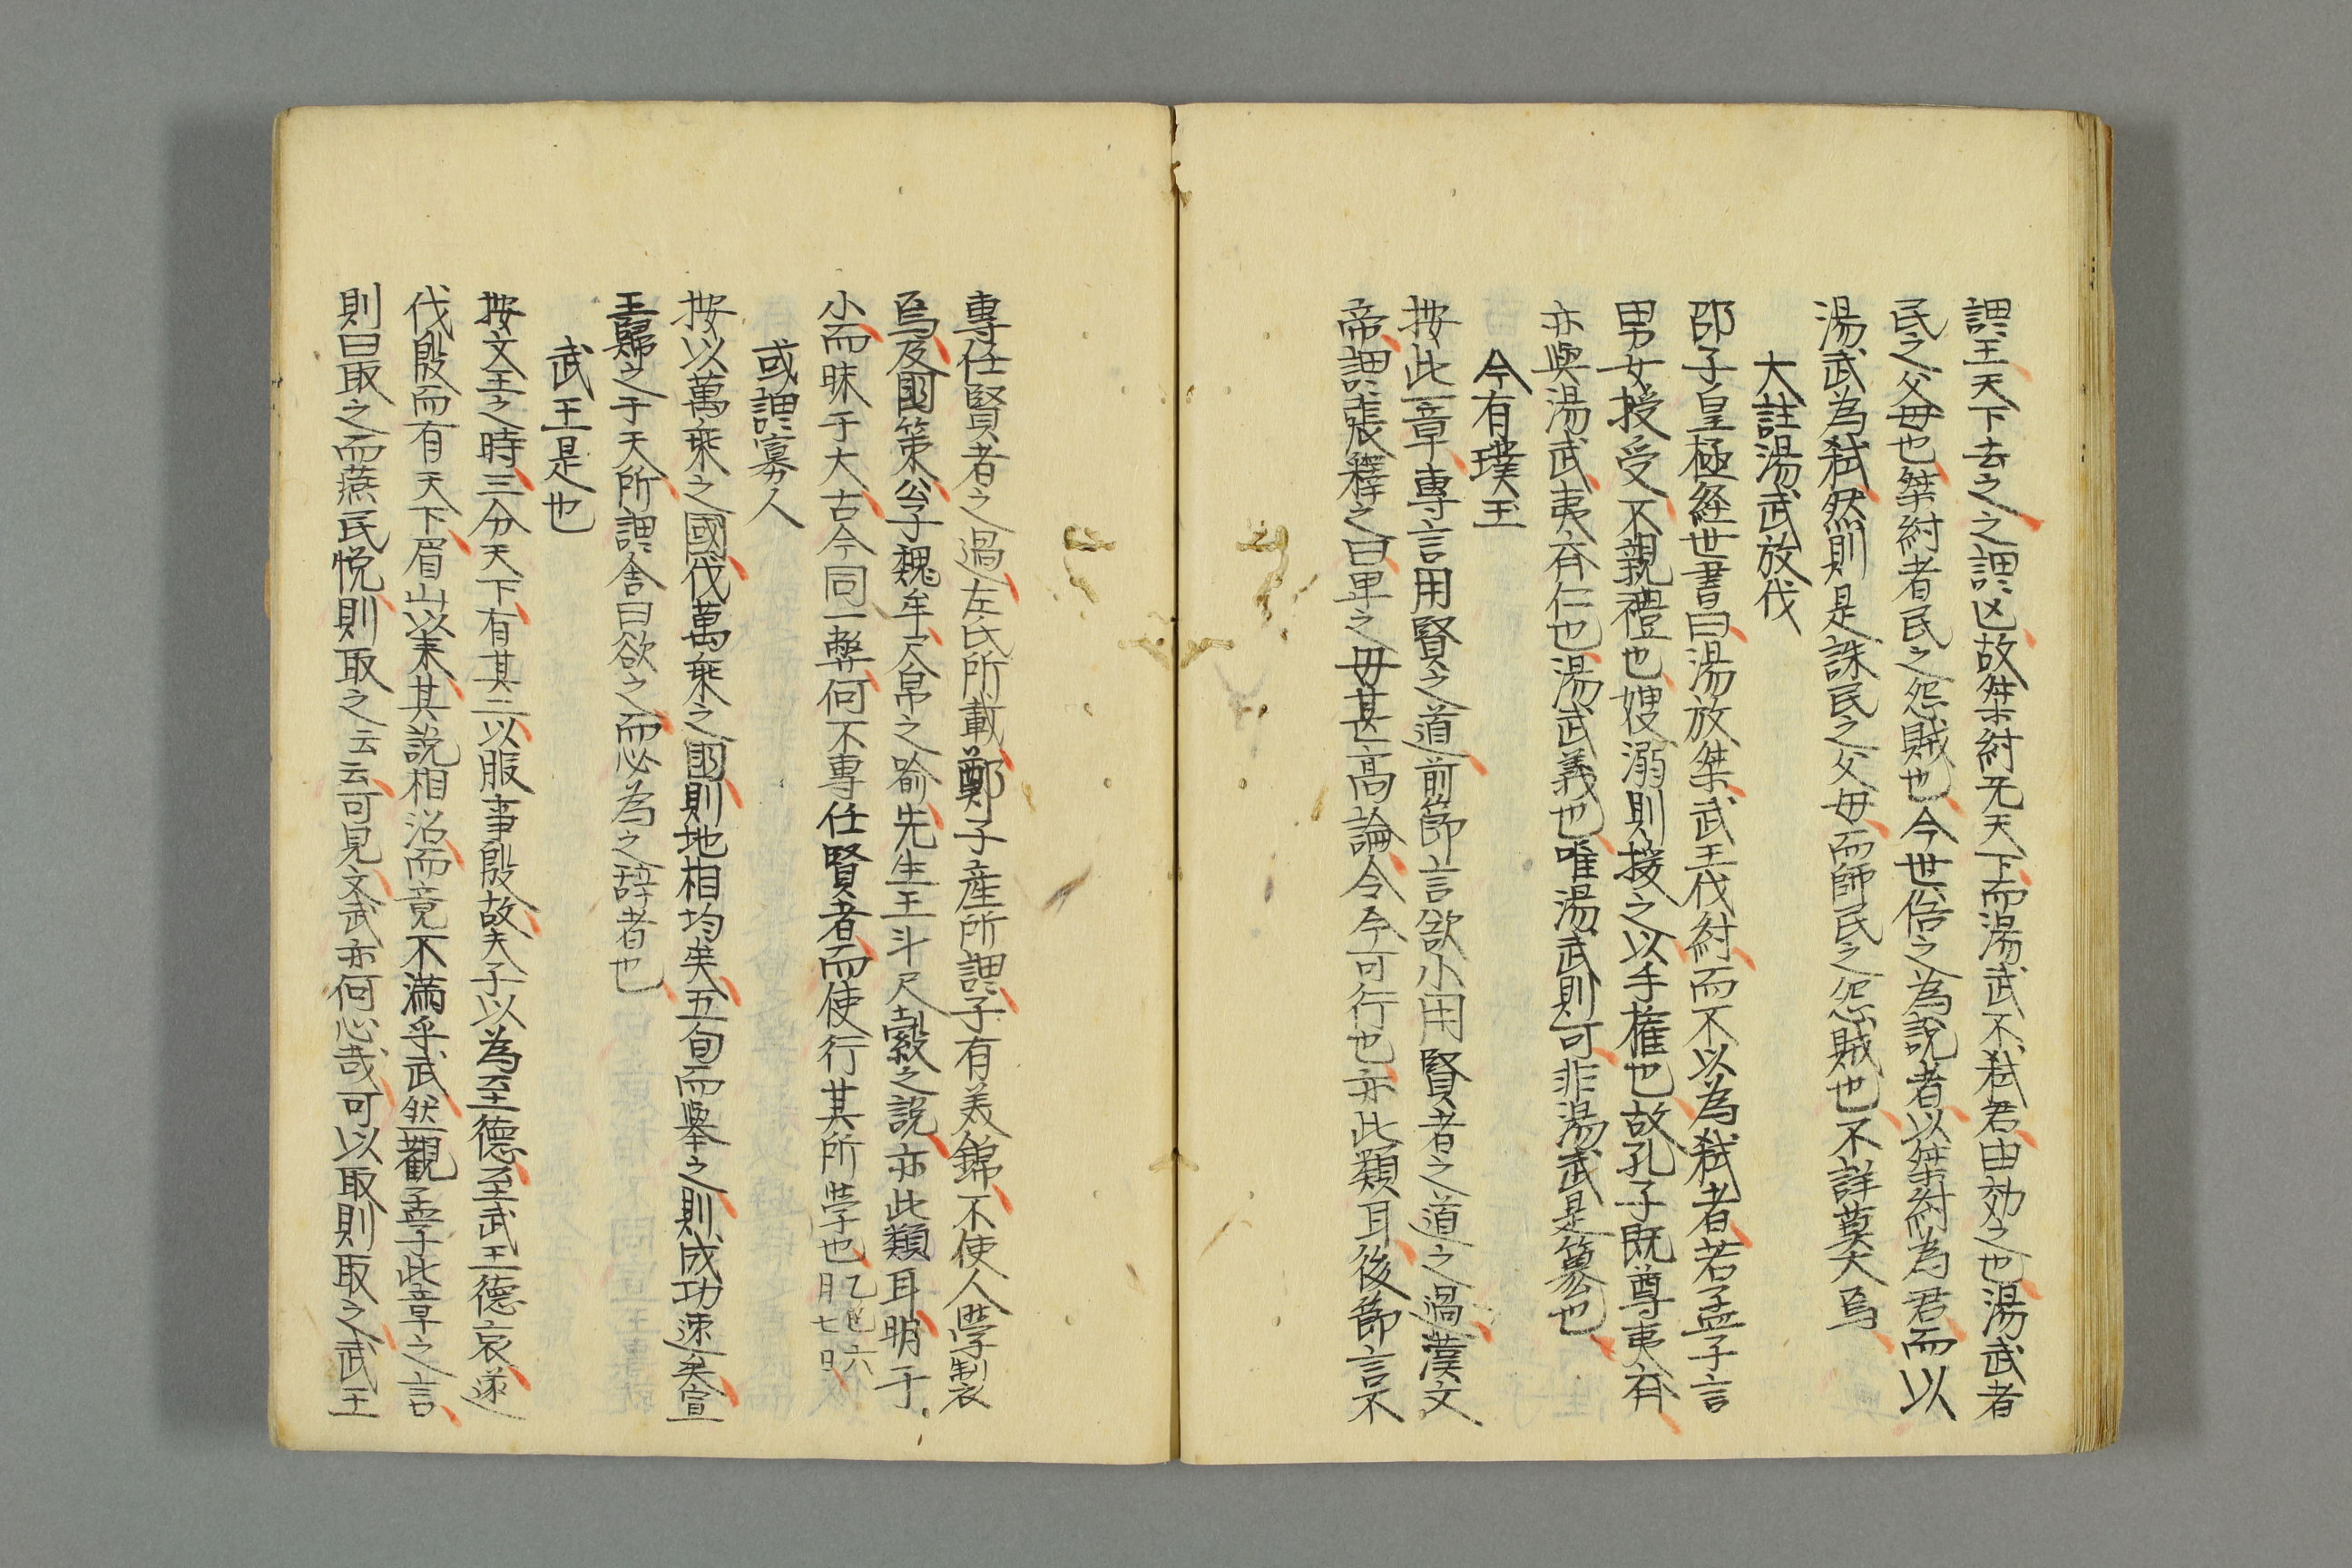 謂王天下去之之謂凶故桀紂无天下而湯武不弑君由効之也湯武者
民之父毋也桀紂者民之怨賊也今世俗之為說者以桀紂為君而以
湯武為弑然則是誅民之父毋而師民之怨賊也不詳莫大焉
大註湯武放伐
邵子皇極経世書曰湯放桀武王伐紂而不以為弑者若孟子言
男女授受不親禮也嫂溺則援之以手権也故孔子既尊夷斉
亦與湯武夷斉仁也湯武義也唯湯武則可非湯武是篡也
今有璞玉
按此章專言用賢之道前節言欲小用賢者之道之過漢文
帝謂張釋之曰卑之毋甚高論令今可行也亦此類耳後節言不
專任賢者之過左氏所載鄭子産所謂子有美錦不使人學制衣
焉及國策公子魏牟尺帛之喻先生王斗尺縠之說亦此類耳明于
小而昧于大古今同一弊何不專任賢者而使行其所學也乙巳六
月七日
或謂寡人
按以萬乘之國伐萬乘之國則地相均矣五旬而舉之則成功速矣宣
王歸之于天所謂舍曰欲之而必為之辞者也
武王是也
按文王之時三分天下有其二以服事殷故夫子以為至德至武王德衰遂
伐殷而有天下眉山以来其說相沿而竟不滿乎武然觀孟子此章之言
則曰取之而燕民悦則取之云云可見文武亦何心哉可以取則取之武王